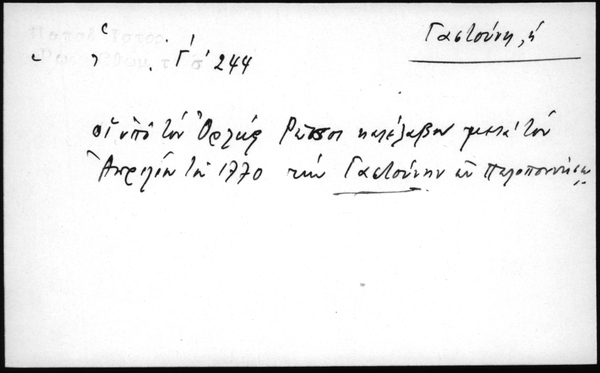 Γαστούνη, ἡ
Γ΄ 244
οἱ ὑπὸ τὸν Ὀρλώφ Ρῶσοι κατέλαβον μετὰ τὸν
Ἀπρίλιον τοῦ 1770 τὴν Γαστούνην τῆς Πελοποννήσου